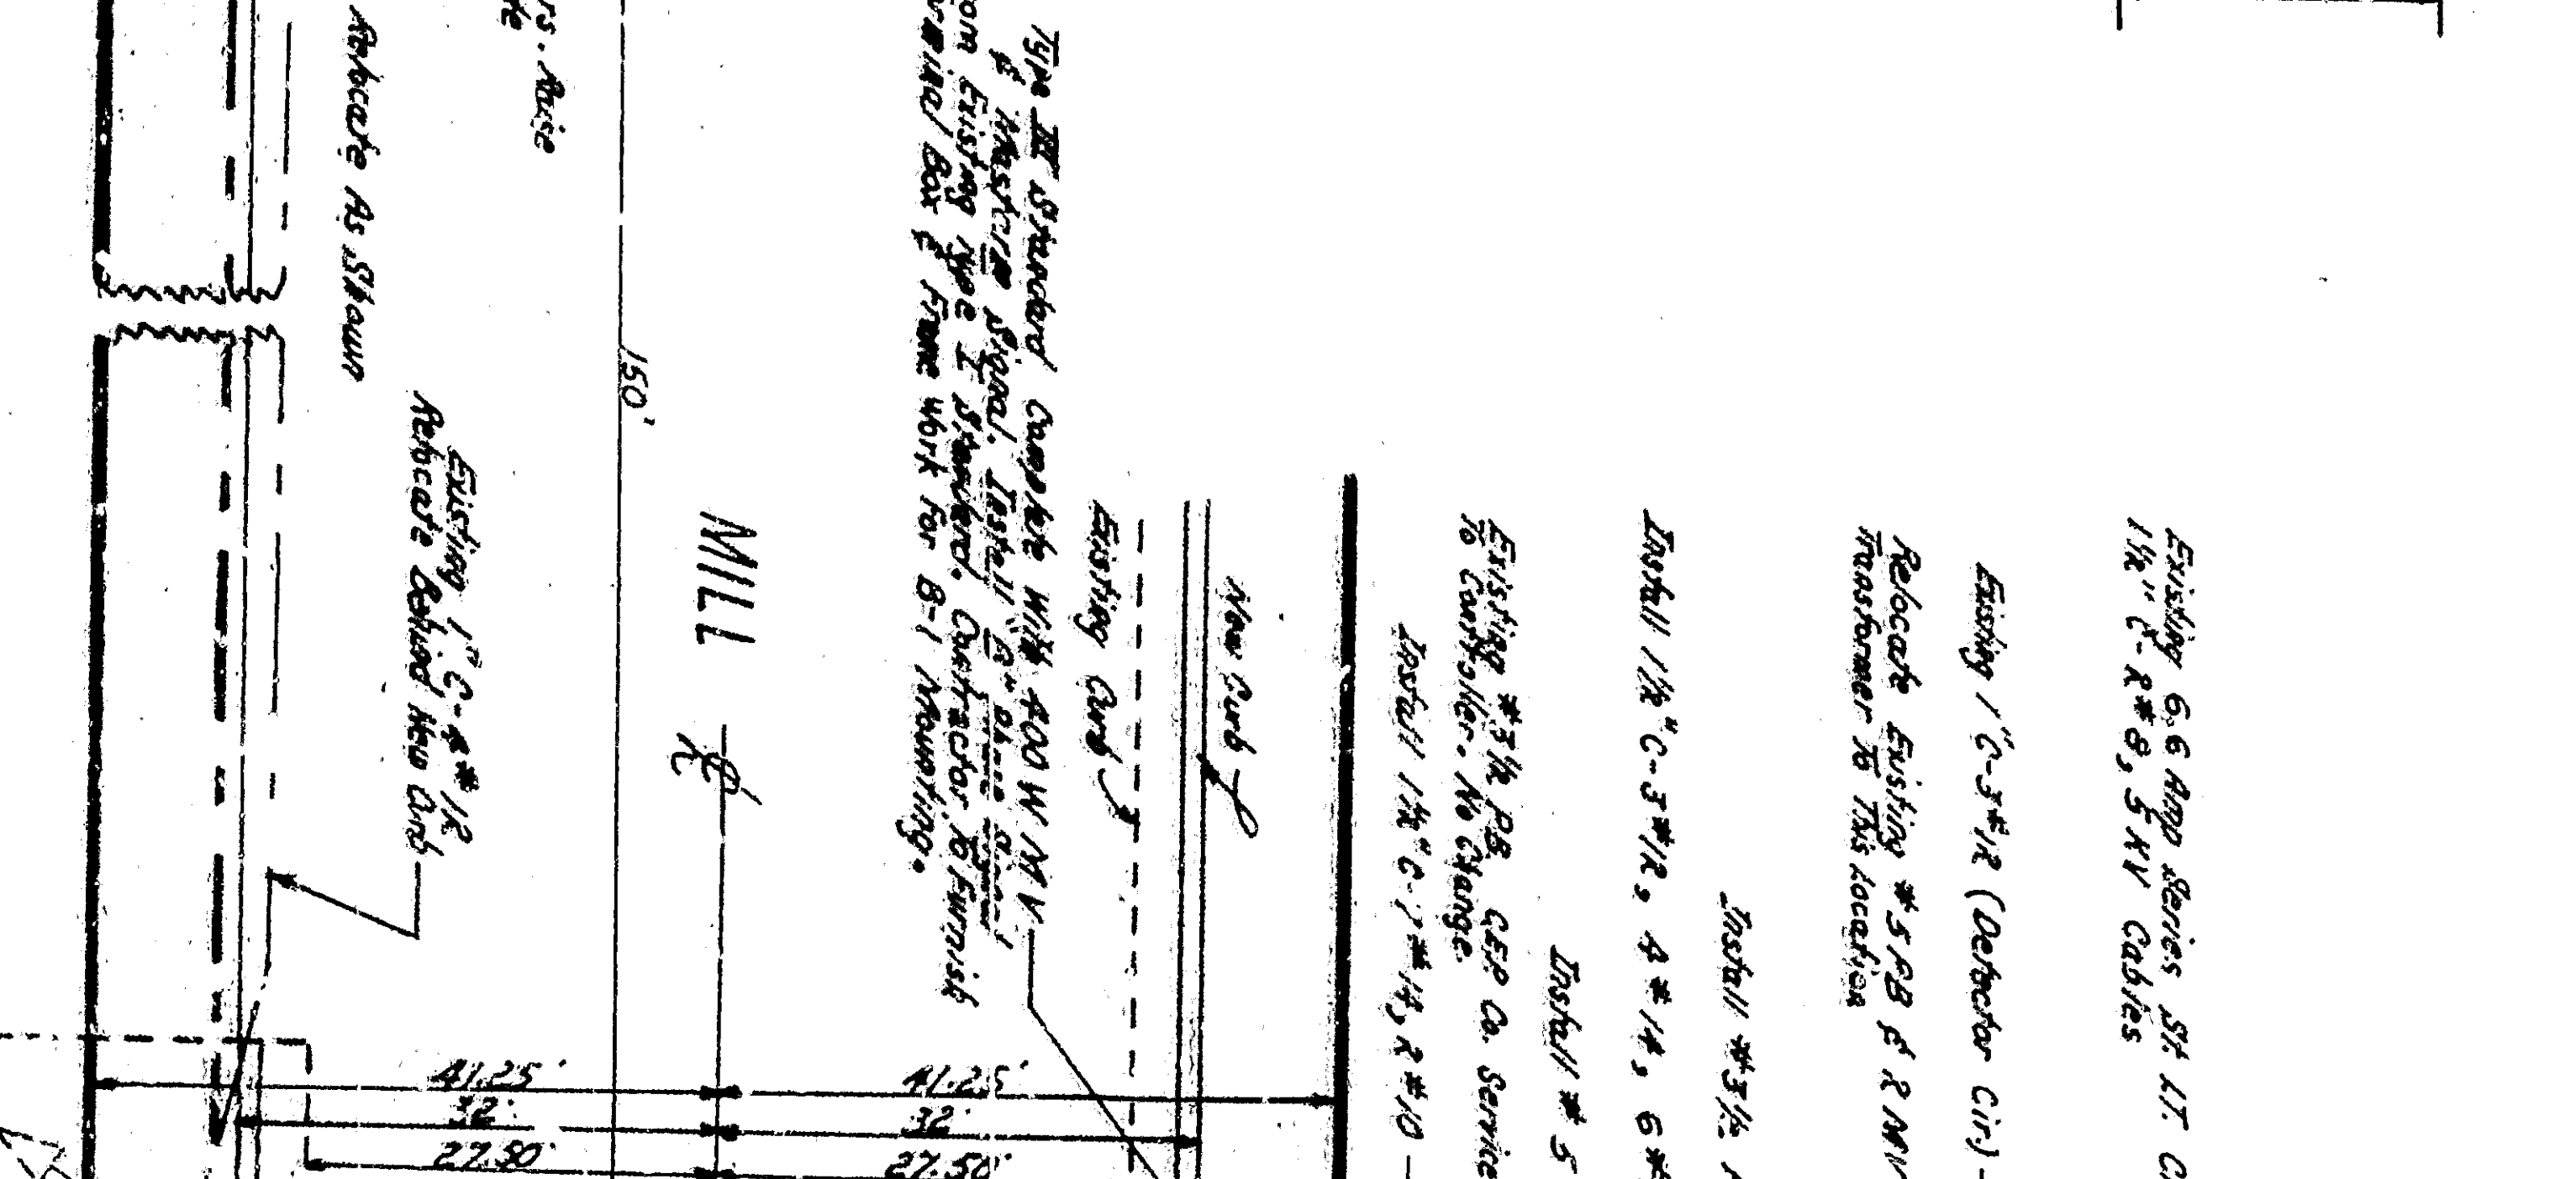 Existing 6.6 Amp Series St. LT. C
1½" C - 2 #8, 5 KV Cables
Existing 1" C-3 #12 (Detector Cir.) -
Relocate Existing #5 PB & 2 MV
Transformer To This Location
Install #3½
Install 1½" C-3 #12, 4 #14, 6 #
Install #5
Existing #3½ PB
To Controller. No Change.
Service
Install 1½" C-7 #14, 2 #10 -
New Curb
Existing Curb
Type III Standard Complete With 400 W MV
Signal. Install
Existing Type I Standard. Contractor To Furnish
Box & Frame Work For B-1 Mounting.
MILL
150'
Raise
Existing 1" C-4 #12
Relocate Behind New Curb
Relocate As Shown
41.25'
41.25'
32'
32'
27.50'
27.50'